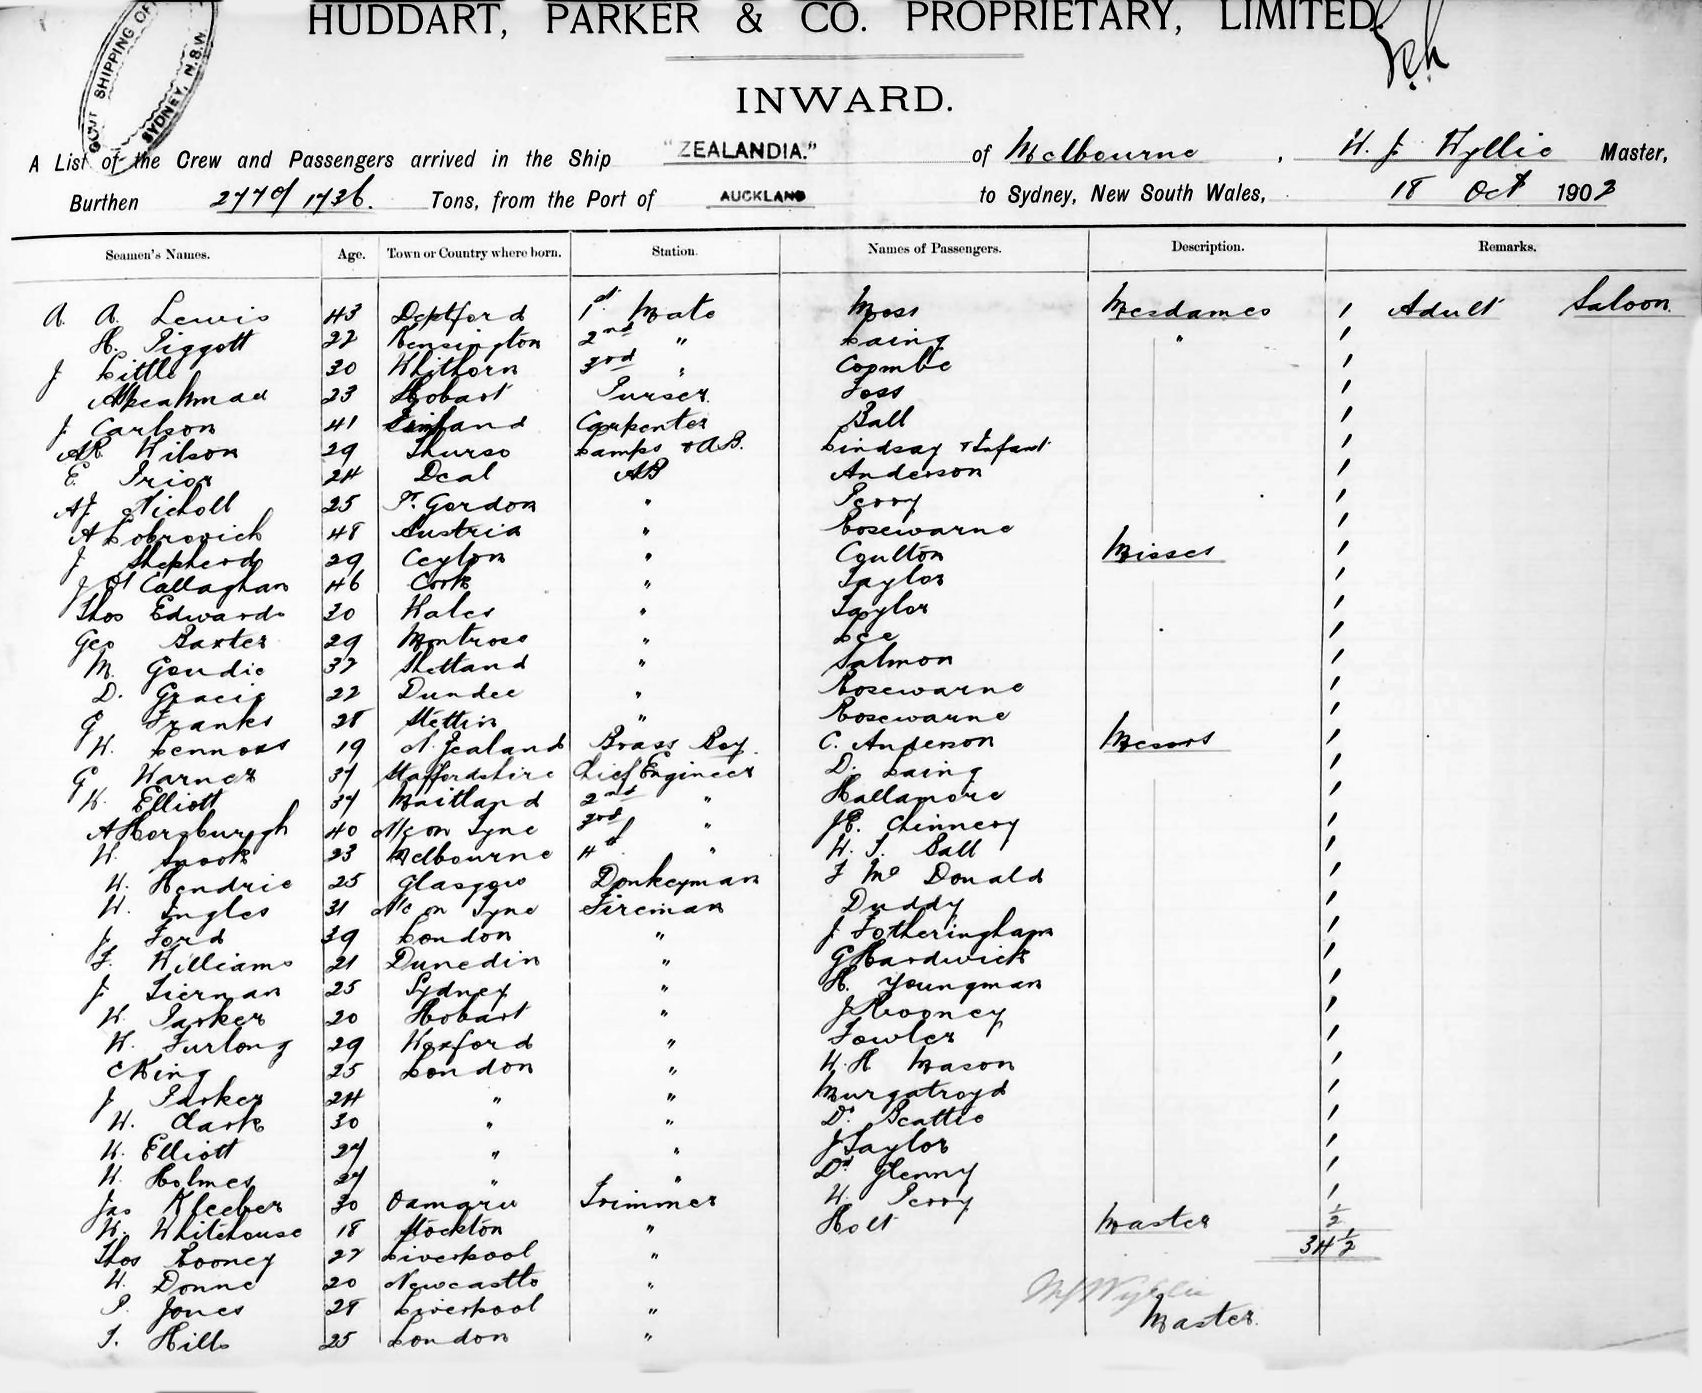 HUDDART, PARKER & CO. PROPRIETARY, LIMITED.
GOVT SHIPPING OF
SYDNEY, N.S.W
INWARD.
A List of the Crew and Passengers arrived in the Ship "ZEALANDIA." of Melbourne, W. J. Wyllie Master,
Burthen 2770/1736. Tons, from the Port of AUCKLAND to Sydney, New South Wales, 18 Oct 1902
Seamen's Names. Age. Town or Country where born. Station. Names of Passengers. Description. Remarks.
A. A. Lewis 43 Deptford 1st Mate Moss Mesdames 1 Adult Saloon
H. Piggott 22 Kensington 2nd " Laing " 1
J Little 30 Whithorn 3rd " Coombe 1
23 Hobart Purser Foss 1
J. Carlson 41 Finland Carpenter Ball 1
Wilson 29 Thurso Lamps & A.B. Lindsay & Infant 1
E. Prior 24 Deal AB Anderson 1
A.J. Nicholl 25 Pt. Gordon " Perry 1
A Lobrovich 48 Austria " Rosewarne 1
J. Shepherd 29 Ceylon " Coulton Misses 1
J O'Callaghan 46 Cork " Taylor 1
Thos Edwards 30 Wales " Taylor 1
Geo Baxter 29 Montrose " Lee 1
M. Goudie 37 Shetland " Salmon 1
D. Gracie 22 Dundee " Rosewarne 1
G Franks 28 Stettin " Rosewarne 1
W. Lennox 19 N. Zealand Brass Boy. C. Anderson Messrs 1
G Warner 37 Staffordshire Chief Engineer D. Laing 1
W. Elliott 37 Maitland 2nd " Hallamore 1
A Horsburgh 40 N/c on Tyne 3rd " J.E. Chinnery 1
W. Snook 23 Melbourne 4th " W. J. Ball 1
W. Hendrie 25 Glasgow Donkeyman F McDonald 1
W. Ingles 31 N/c on Tyne Fireman Duddy 1
J. Ford 39 London " J. Fotheringham 1
F. Williams 21 Dunedin " G Hardwick 1
J. Tiernan 25 Sydney " H. Youngman 1
W. Parker 20 Hobart " J Rooney 1
W. Furlong 29 Wexford " Fowler 1
C King 25 London " W. H Mason 1
J. Parker 24 " " Murgatroyd 1
W. Clark 30 " " Dr. Beattie 1
W. Elliott 27 " " J Taylor 1
W. Holmes 27 " " Dr. Glenny 1
Jas Kleeber 30 Oamaru Trimmer W. Perry 1
W. Whitehouse 18 Stockton " Holt Master 1/2
Thos Rooney 27 Liverpool " 34 1/2
W. Donne 20 Newcastle "
P. Jones 28 Liverpool " Wyllie
T. Hills 25 London " Master.